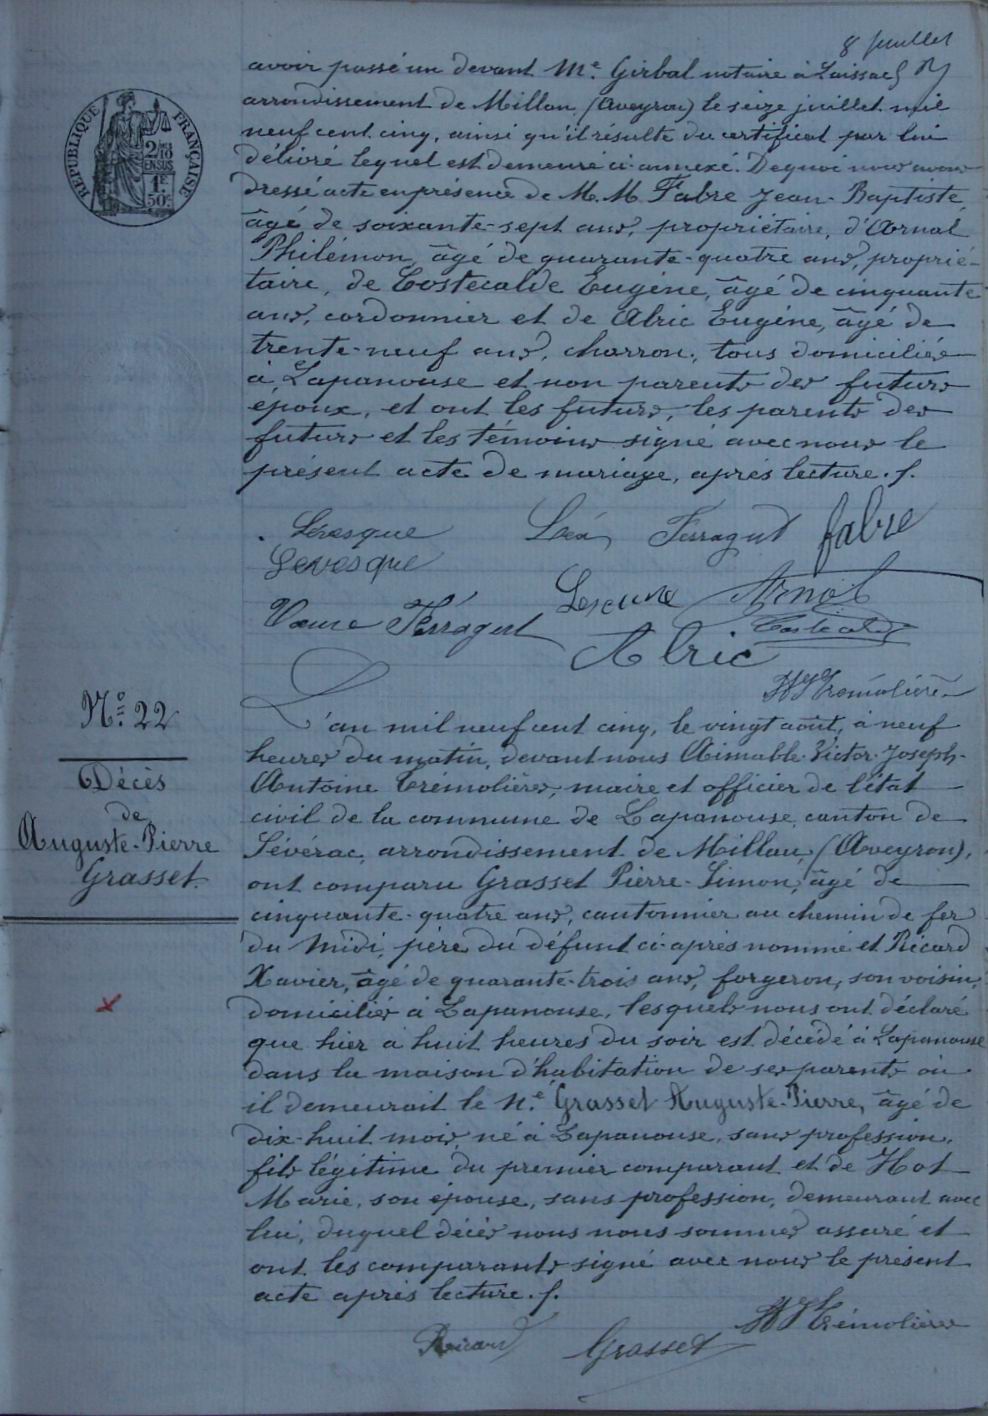 8 juillet
avoir passé un devant Me. Girbal notaire à Laissac
arrondissement de Millau (Aveyron) le seize juillet mil
neuf cent cinq, ainsi qu'il résulte du certificat par lui
délivré lequel est demeuré ci-annexé. De quoi nous avons
dressé acte en présence de M.M. Fabre Jean-Baptiste,
âgé de soixante-sept ans, propriétaire, d'Arnal
Philémon, âgé de quarante-quatre ans, proprié-
taire, de Costecalde Eugène, âgé de cinquante
ans, cordonnier et de Alric Eugène, âgé de
trente-neuf ans, charron, tous domiciliés
à Lapanouse et non parents des futurs
époux, et ont les futurs, les parents des
futurs et les témoins signé avec nous le
présent acte de mariage, après lecture. f.
Levesque Léa Ferragut fabre
Levesque
Lescure Arnal
Veuve Férragut Costecalde
Alric
Trémolières
RÉPUBLIQUE FRANÇAISE
2/10 EN SUS
1F 50c
No. 22
Décès
de
Auguste-Pierre
Grasset.
L'an mil neuf cent cinq, le vingt août, à neuf
heures du matin, devant nous Aimable-Victor-Joseph-
Antoine Trémolières, maire et officier de l'état
civil de la commune de Lapanouse, canton de
Sévérac, arrondissement de Millau, (Aveyron),
ont comparu Grasset Pierre-Simon, âgé de
cinquante-quatre ans, cantonnier au chemin de fer
du Midi, père du défunt ci-après nommé et Ricard
Xavier, âgé de quarante-trois ans, forgeron, son voisin,
domiciliés à Lapanouse, lesquels nous ont déclaré
que hier à huit heures du soir est décédé à Lapanouse
dans la maison d'habitation de ses parents où
il demeurait le né. Grasset Auguste-Pierre, âgé de
dix-huit mois, né à Lapanouse, sans profession,
fils légitime du premier comparant et de Hot
Marie, son épouse, sans profession, demeurant avec
lui, duquel décès nous nous sommes assuré et
ont les comparants signé avec nous le présent
acte après lecture. f.
Ricard Grasset Trémolières